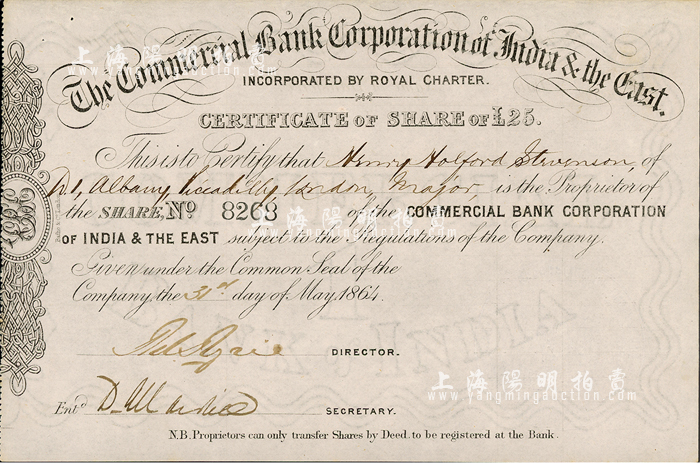 The Commercial Bank Corporation of India & the East.
INCORPORATED BY ROYAL CHARTER.
CERTIFICATE OF SHARE OF £25.
This is to Certify that Henry Holford Stevenson, of
Albany Piccadilly London, Major, is the Proprietor of
the SHARE, No 8268 of the COMMERCIAL BANK CORPORATION
OF INDIA & THE EAST subject to the Regulations of the Company.
Given under the Common Seal of the
Company, the 31st day of May, 1864.
DIRECTOR.
Entd
SECRETARY.
N.B. Proprietors can only transfer Shares by Deed, to be registered at the Bank.
上海陽明拍賣
www.yangmingauction.com
上海陽明拍賣
www.yangmingauction.com
上海陽明拍賣
www.yangmingauction.com